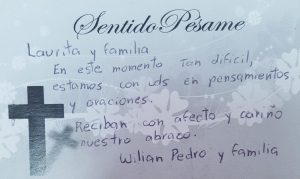 Sentido Pésame
Laurita y familia
En este momento tan dificil,
estamos con uds en pensamientos
y oraciones.
Reciban con afecto y cariño
nuestro abrazo.
Wilian Pedro y familia